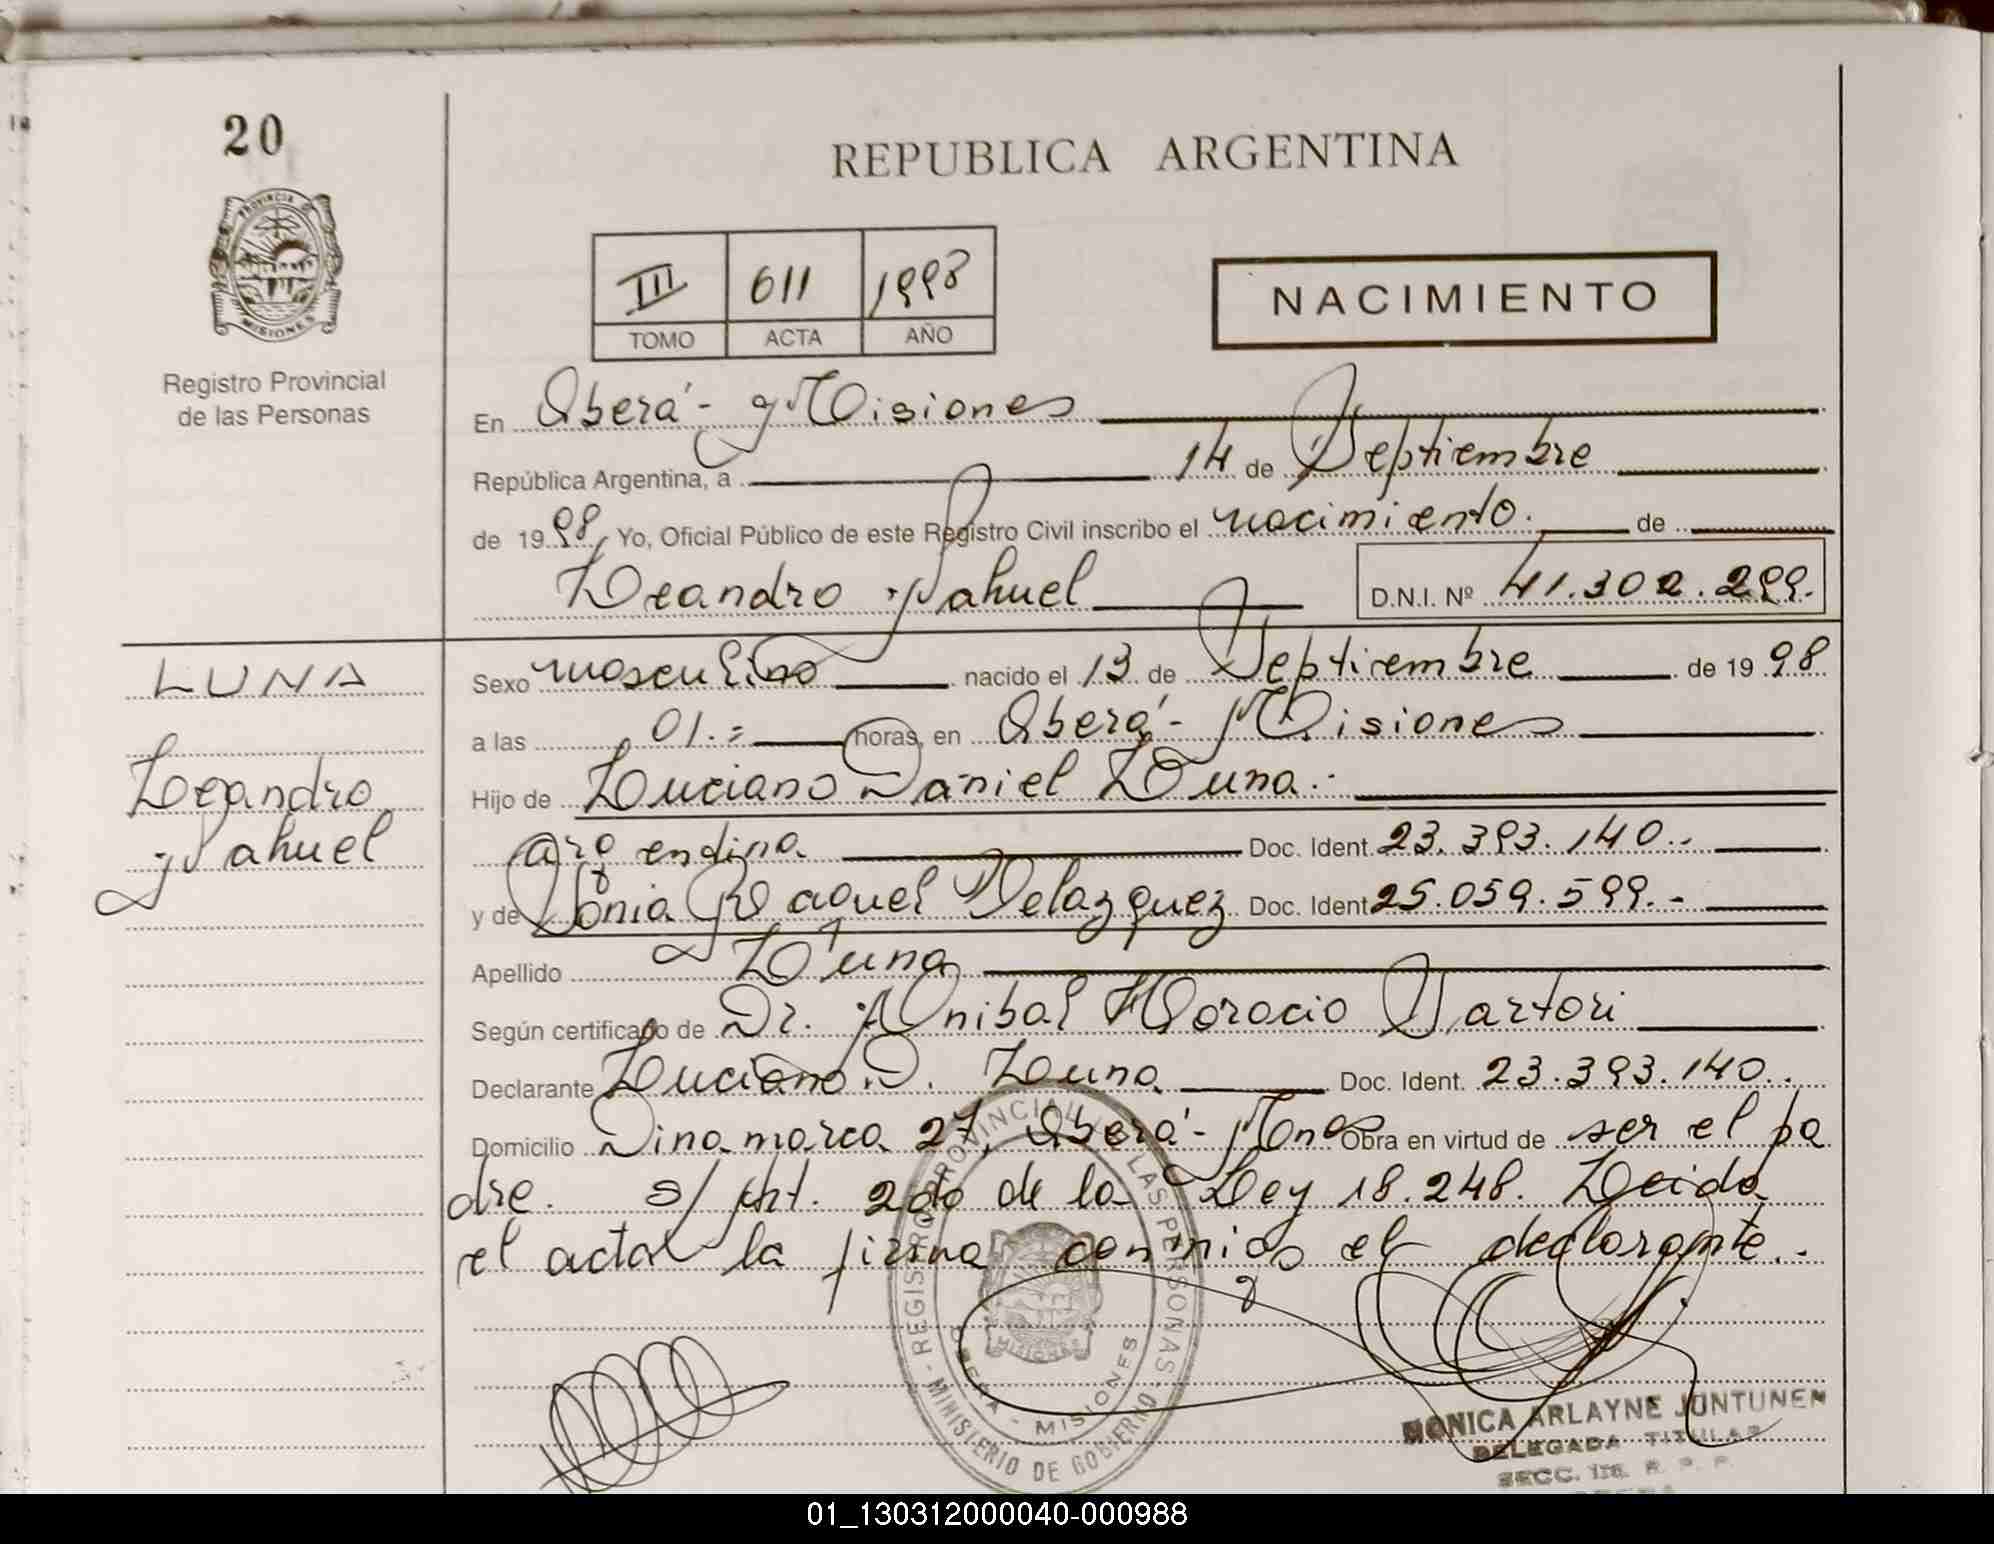 20
REPUBLICA ARGENTINA
PROVINCIA D
MISIONES
III 611 1998
TOMO ACTA AÑO
NACIMIENTO
Registro Provincial
de las Personas
En Oberá - Misiones
República Argentina, a 14 de Septiembre
de 1998, Yo, Oficial Público de este Registro Civil inscribo el nacimiento. de
Leandro Nahuel D.N.I. Nº 41.302.299.
LUNA
Leandro
Nahuel
Sexo masculino nacido el 13 de Septiembre de 1998
a las 01.= horas, en Oberá - Misiones
Hijo de Luciano Daniel Luna.-
argentina Doc. Ident. 23.393.140.-
y de Sonia Raquel Velazquez Doc. Ident. 25.059.599.-
Apellido Luna
Según certificado de Dr. Anibal Horacio Sartori
Declarante Luciano D. Luna Doc. Ident. 23.393.140..
Domicilio Dinamarca 27, Oberá - Mnes Obra en virtud de ser el pa
dre. s/ Art. 2do de la Ley 18.248. Leida
el acta la firma conmigo el declarante.-
REGISTRO PROVINCIAL DE LAS PERSONAS
MISIONES
OBERA - MISIONES
MINISTERIO DE GOBIERNO
MONICA ARLAYNE JUNTUNEN
DELEGADA TITULAR
SECC. R. P. P.
01_130312000040-000988